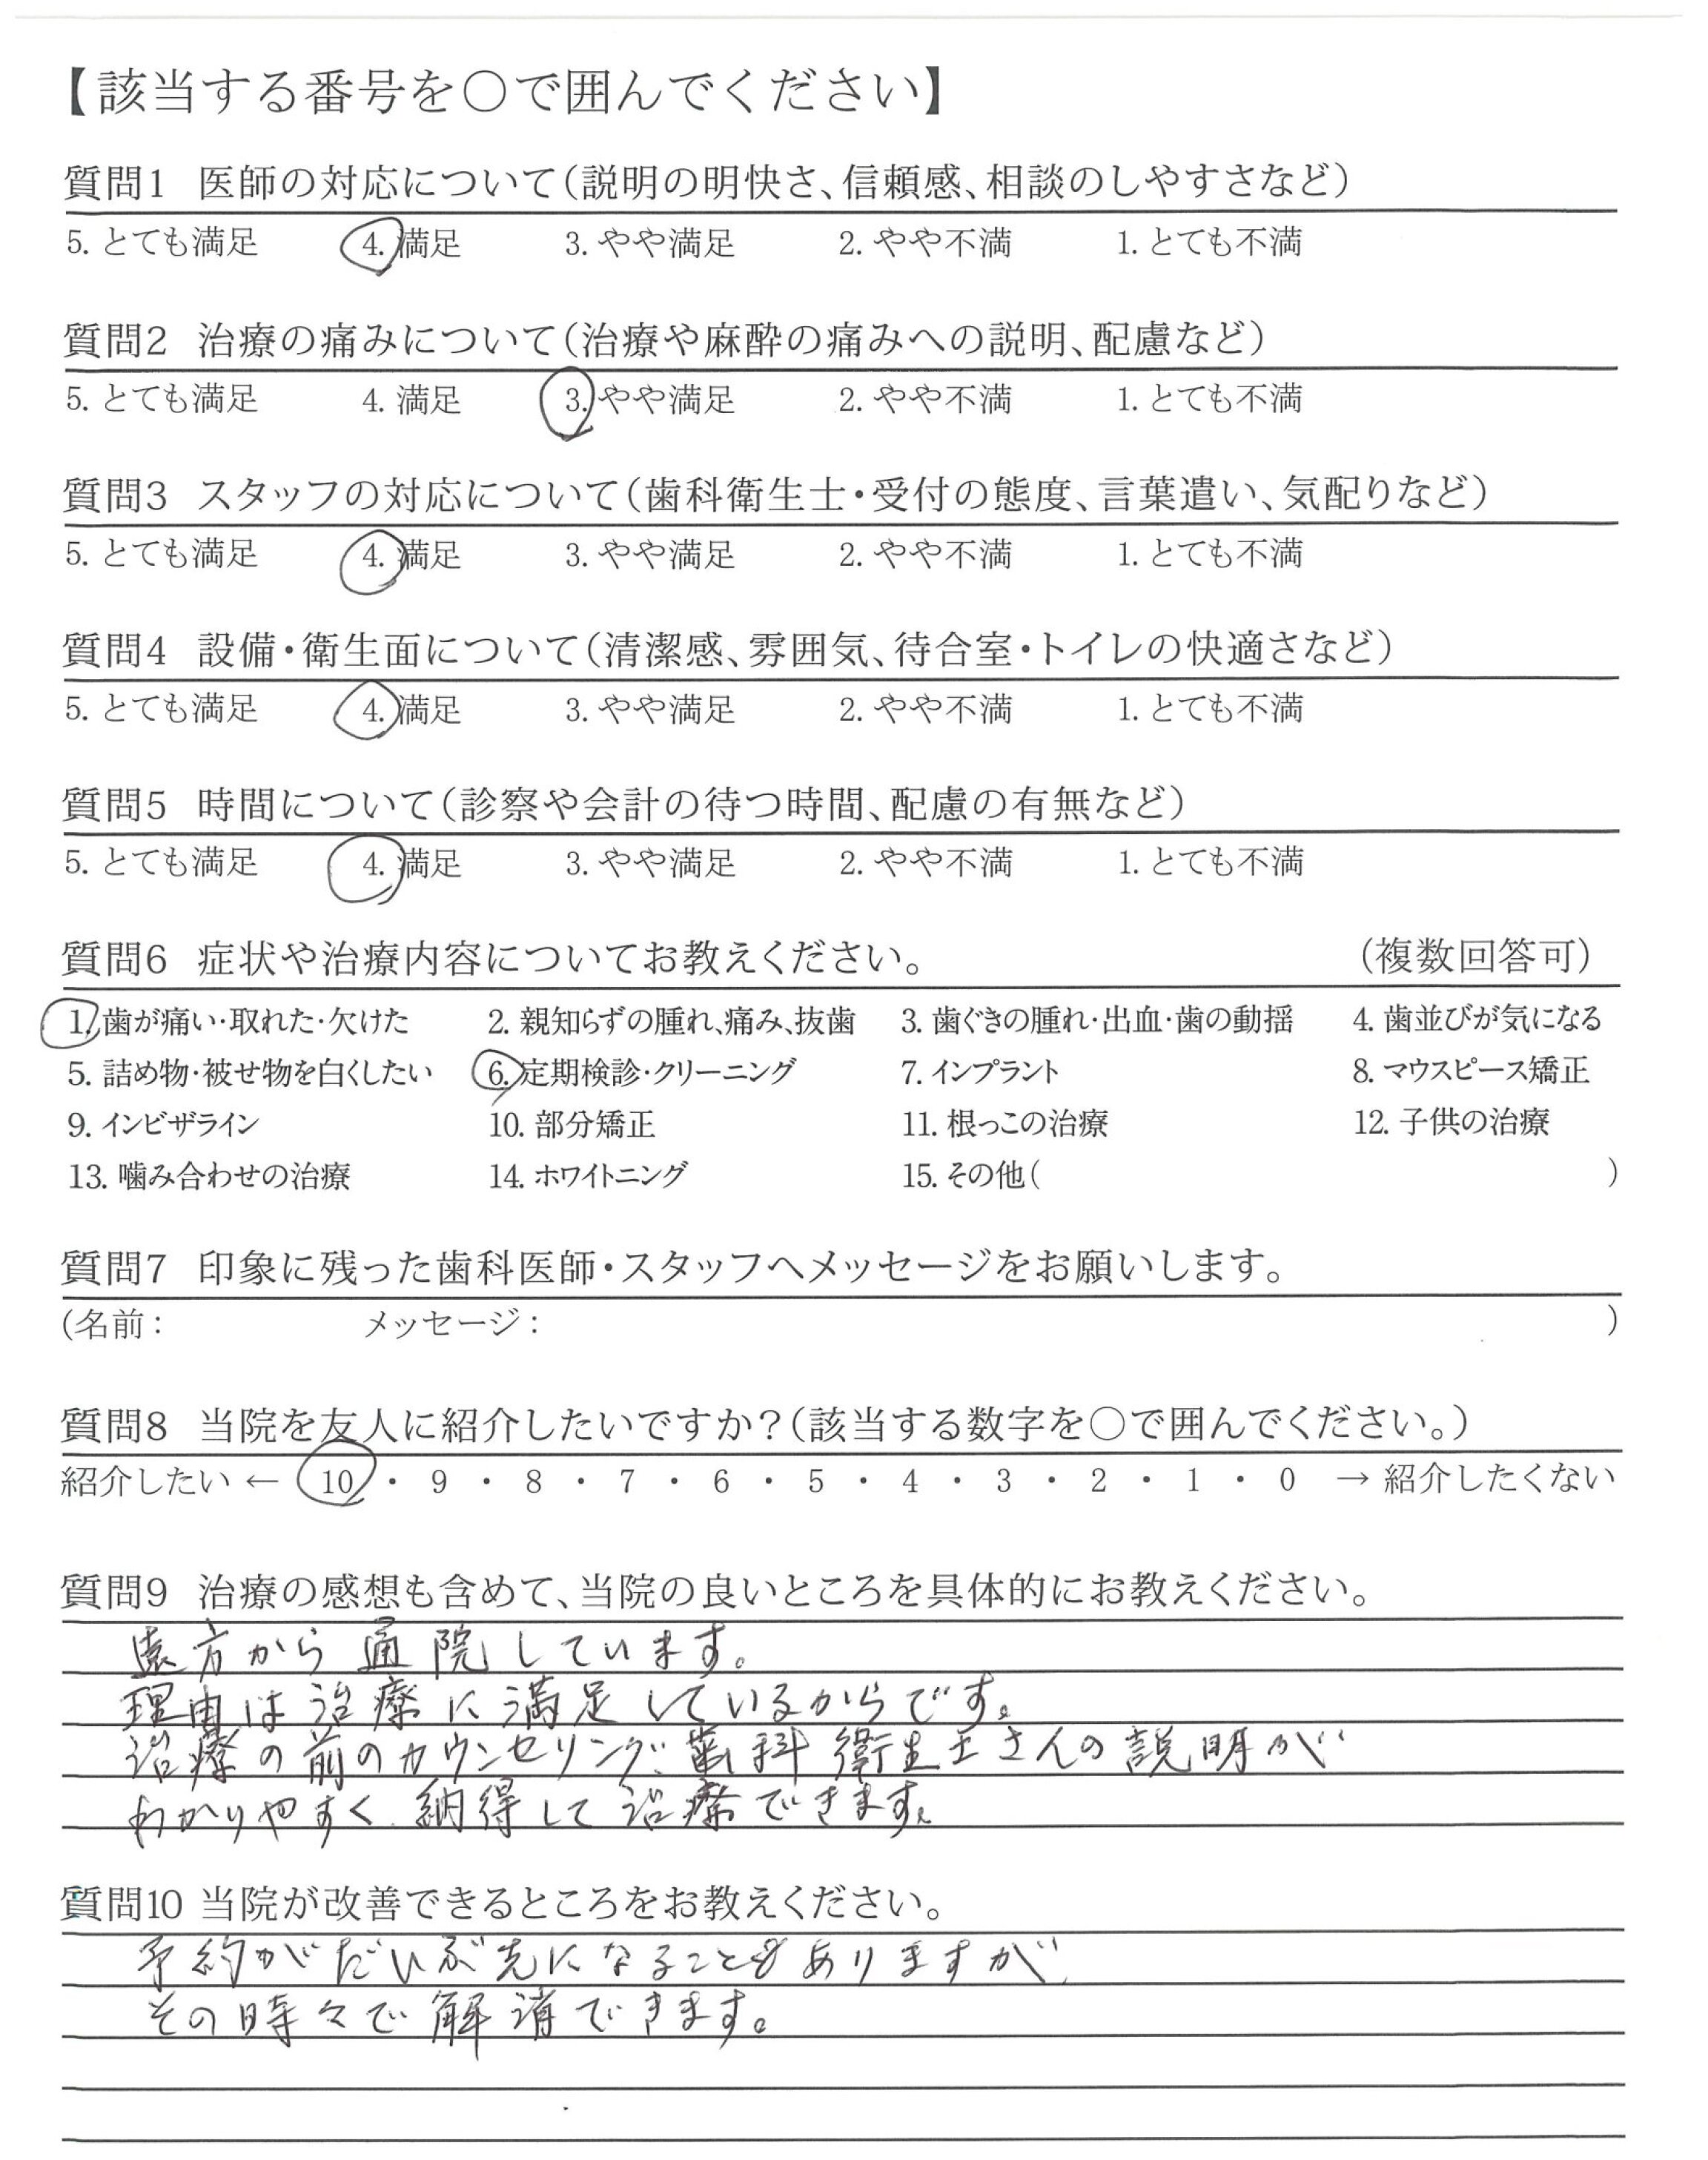 【該当する番号を○で囲んでください】
質問1 医師の対応について(説明の明快さ、信頼感、相談のしやすさなど)
5. とても満足 4. 満足 3. やや満足 2. やや不満 1. とても不満
質問2 治療の痛みについて(治療や麻酔の痛みへの説明、配慮など)
5. とても満足 4. 満足 3. やや満足 2. やや不満 1. とても不満
質問3 スタッフの対応について(歯科衛生士・受付の態度、言葉遣い、気配りなど)
5. とても満足 4. 満足 3. やや満足 2. やや不満 1. とても不満
質問4 設備・衛生面について(清潔感、雰囲気、待合室・トイレの快適さなど)
5. とても満足 4. 満足 3. やや満足 2. やや不満 1. とても不満
質問5 時間について(診察や会計の待つ時間、配慮の有無など)
5. とても満足 4. 満足 3. やや満足 2. やや不満 1. とても不満
質問6 症状や治療内容についてお教えください。 (複数回答可)
1. 歯が痛い・取れた・欠けた 2. 親知らずの腫れ、痛み、抜歯 3. 歯ぐきの腫れ・出血・歯の動揺 4. 歯並びが気になる
5. 詰め物・被せ物を白くしたい 6. 定期検診・クリーニング 7. インプラント 8. マウスピース矯正
9. インビザライン 10. 部分矯正 11. 根っこの治療 12. 子供の治療
13. 噛み合わせの治療 14. ホワイトニング 15. その他( )
質問7 印象に残った歯科医師・スタッフへメッセージをお願いします。
(名前: メッセージ: )
質問8 当院を友人に紹介したいですか?(該当する数字を○で囲んでください。)
紹介したい ← 10 ・ 9 ・ 8 ・ 7 ・ 6 ・ 5 ・ 4 ・ 3 ・ 2 ・ 1 ・ 0 → 紹介したくない
質問9 治療の感想も含めて、当院の良いところを具体的にお教えください。
遠方から通院しています。
理由は治療に満足しているからです。
治療の前のカウンセリング、歯科衛生士さんの説明が
わかりやすく、納得して治療できます。
質問10 当院が改善できるところをお教えください。
予約がだいぶ先になることもありますが、
その時々で解消できます。